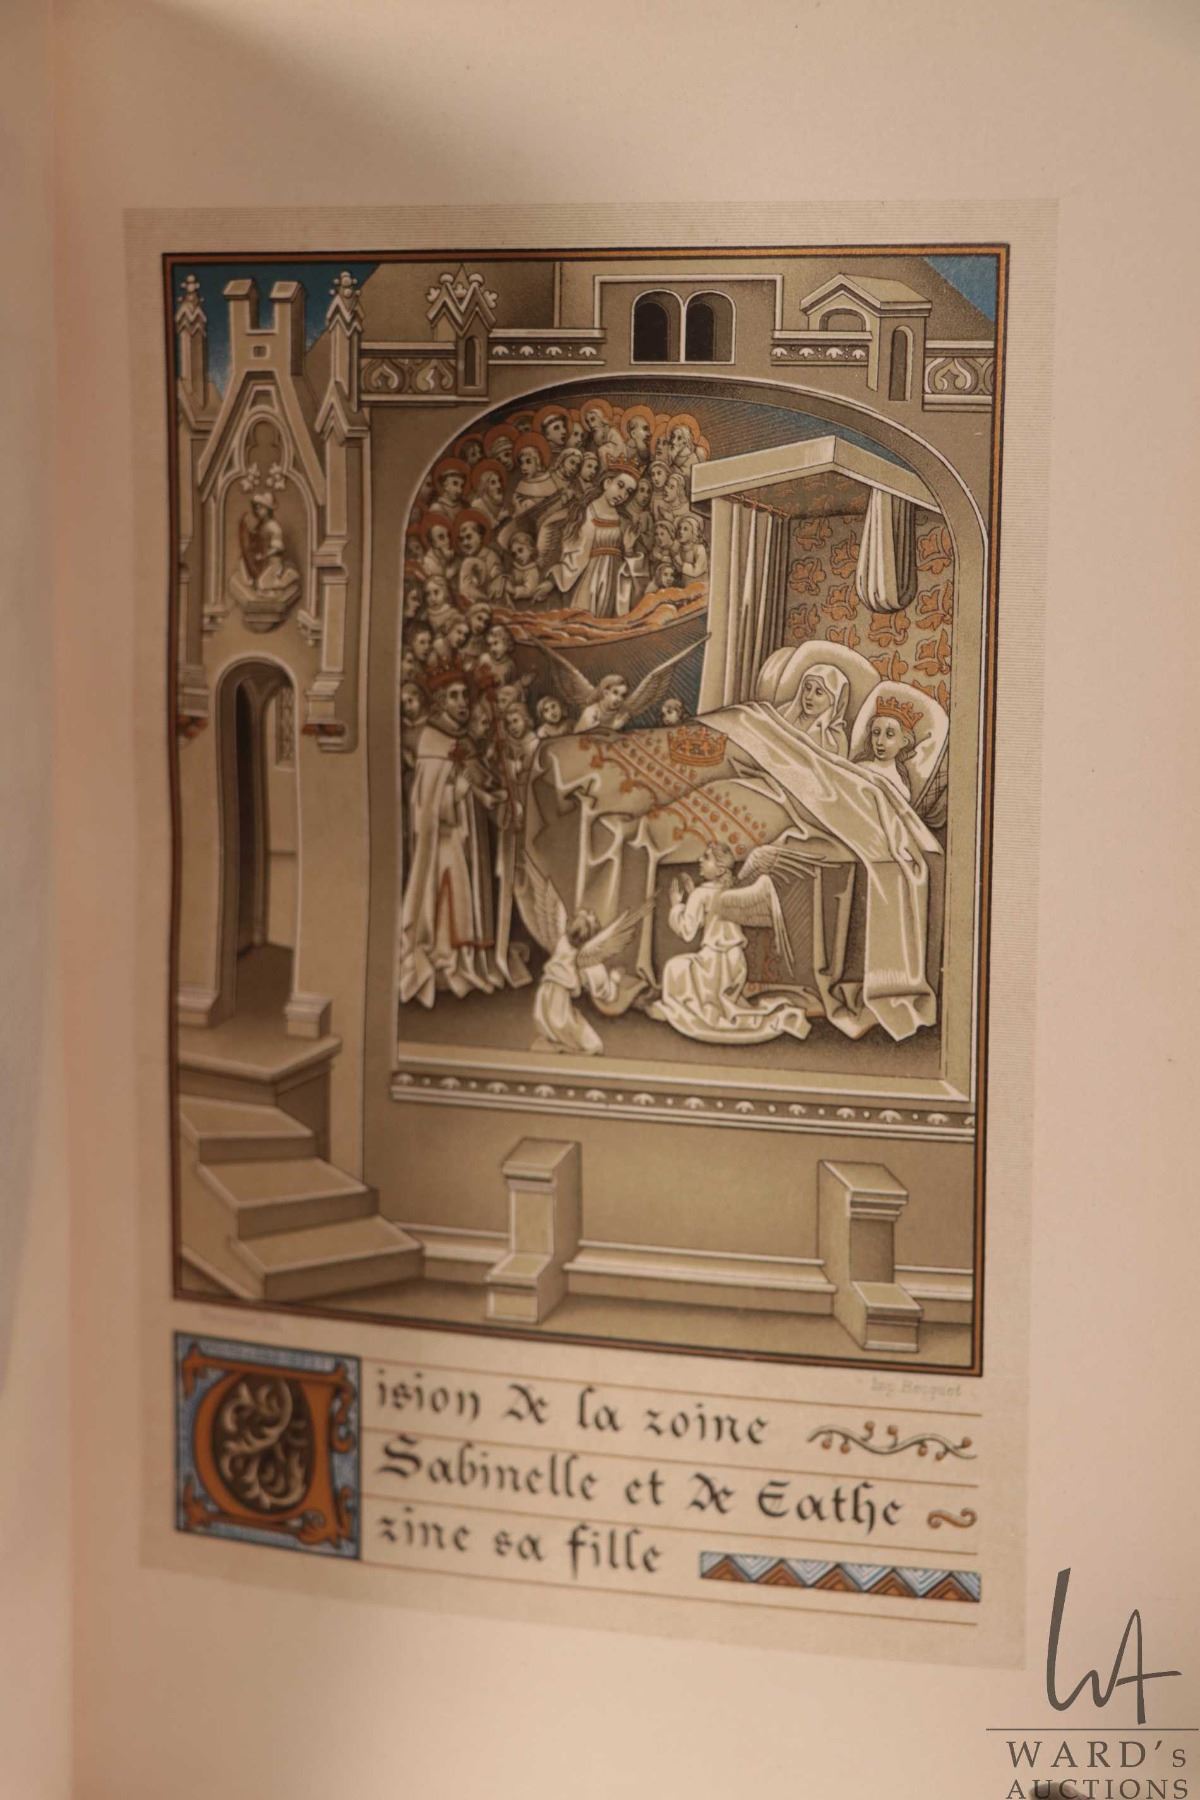 Imp. Hocquet
Vision de la roine
Sabinelle et de Cathe
rine sa fille
WARD's
AUCTIONS